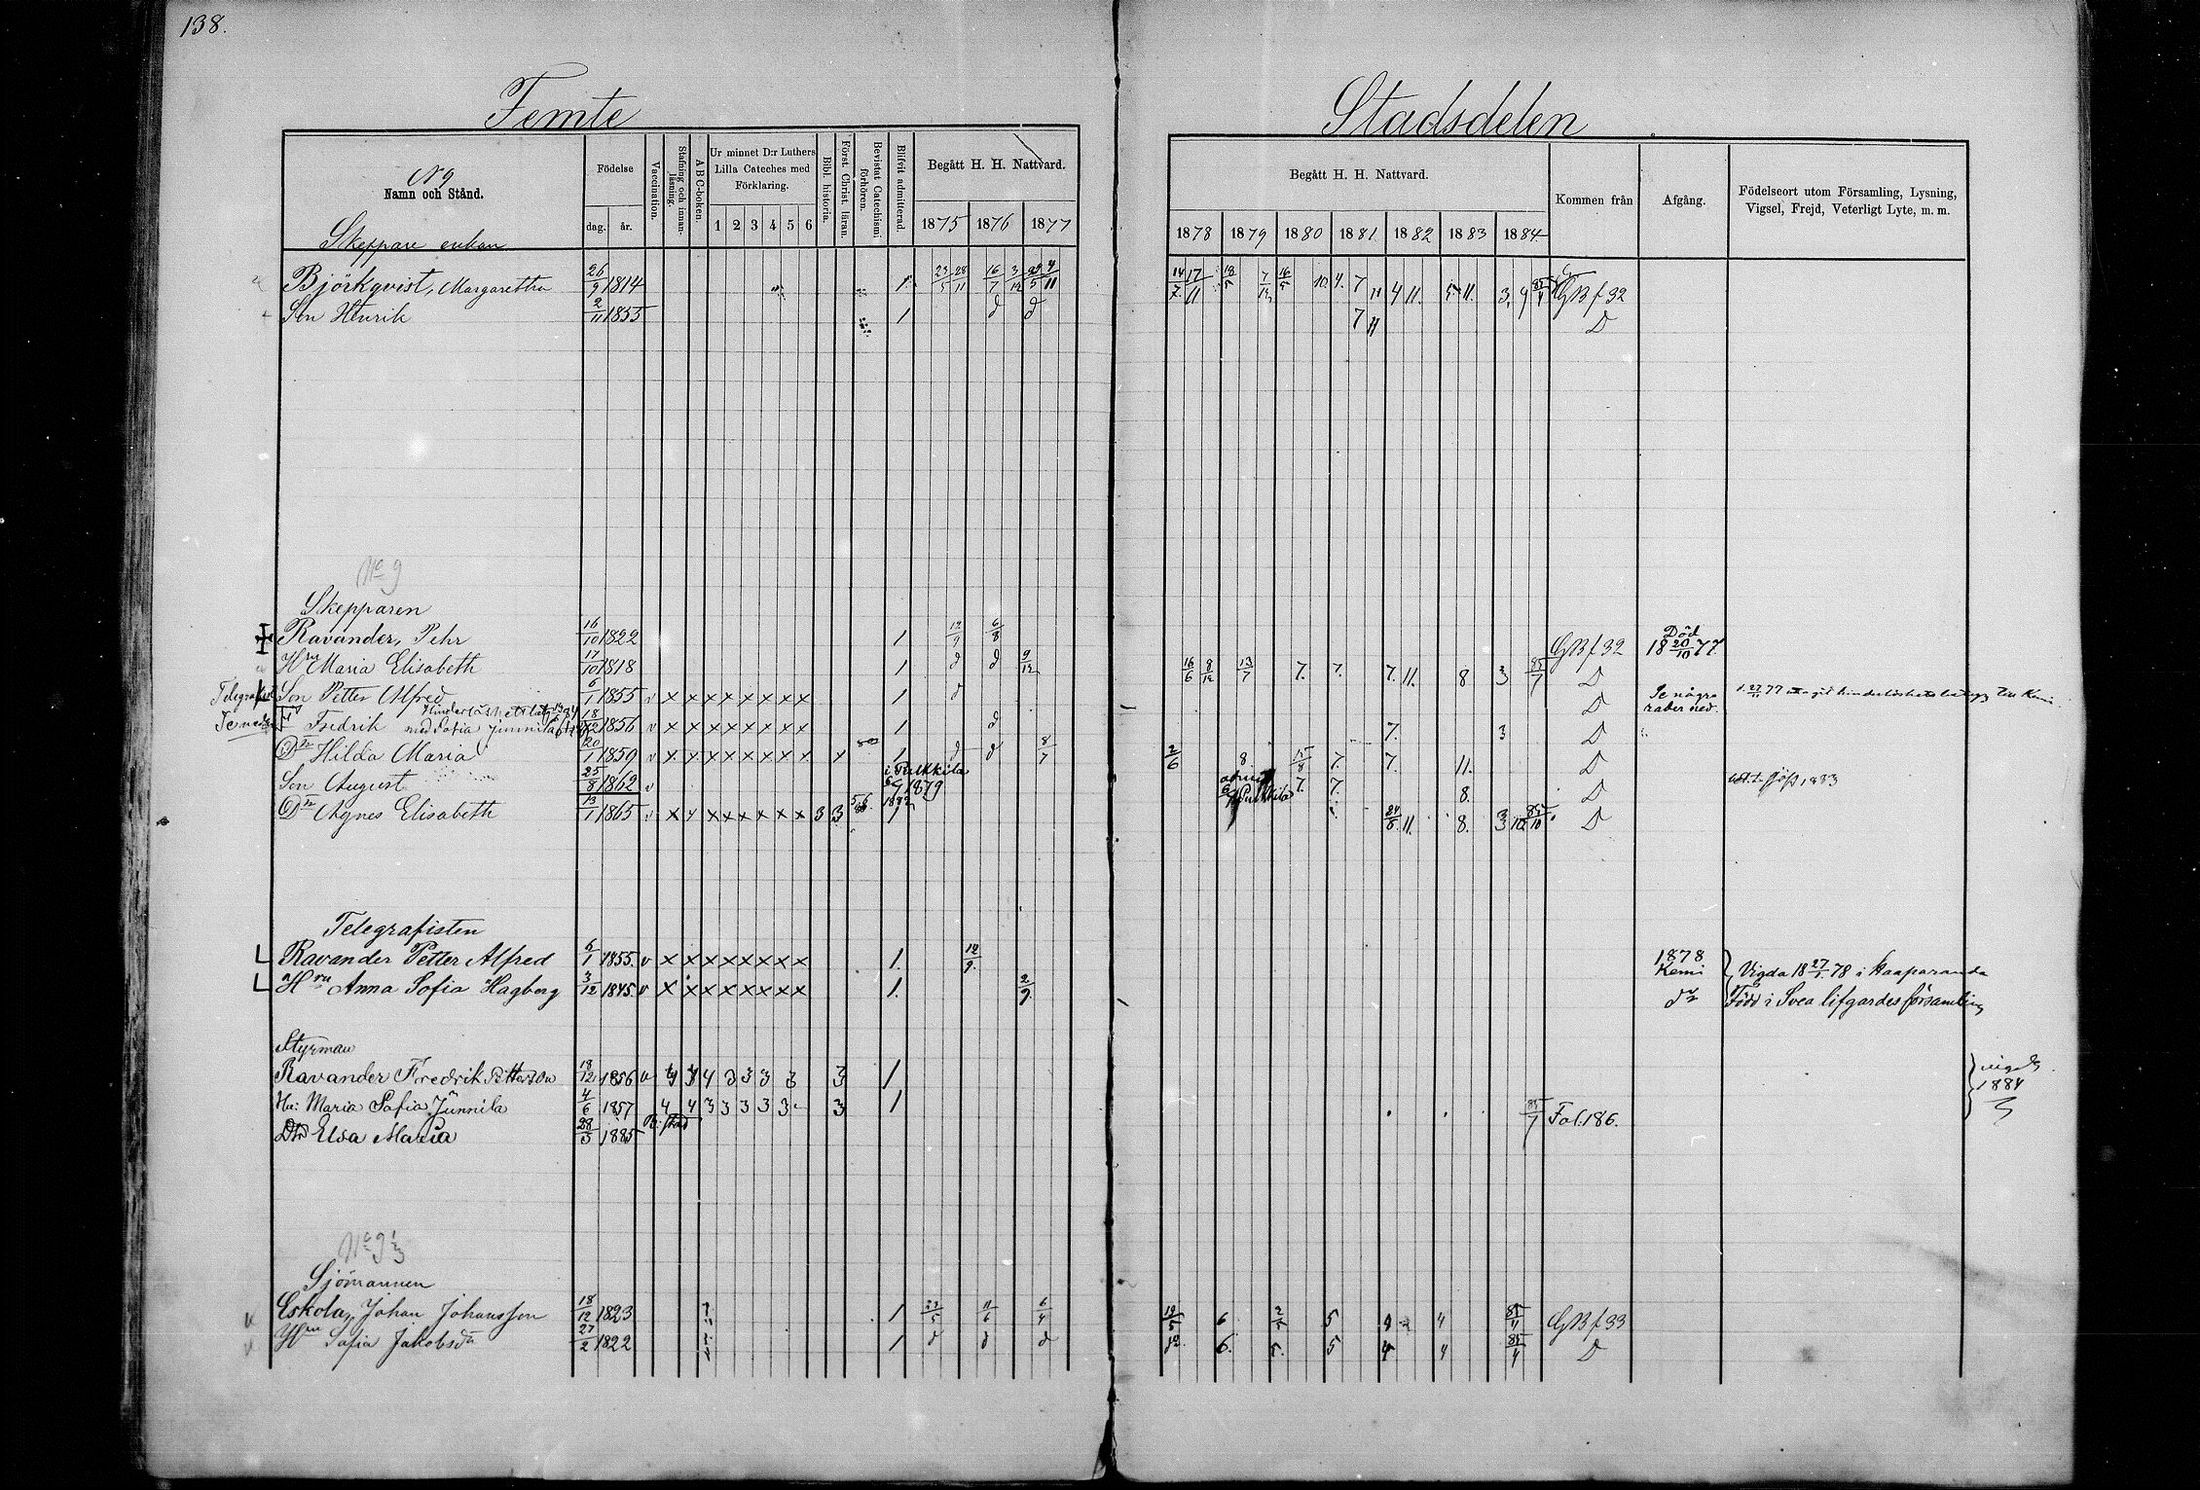 138.
Femte Stadsdelen
N 9
Namn och Stånd.
Födelse
dag. år.
Vaccination.
Stafning och innan-läsning.
A B C-boken.
Ur minnet D:r Luthers Lilla Cateches med Förklaring.
1 2 3 4 5 6
Bibl. historia.
Först. Christ. läran.
Bevistat Catechismi förhören.
Blifvit admitterad.
Begått H. H. Nattvard.
1875 1876 1877
Begått H. H. Nattvard.
1878 1879 1880 1881 1882 1883 1884
Kommen från
Afgång.
Födelseort utom Församling, Lysning, Vigsel, Frejd, Veterligt Lyte, m. m.
Skeppare enkan
Björkqvist, Margaretha 26/9 1814 1 23/5 28/11 16/7 3/12 4/11 14/7 17/11 18/5 7/12 16/5 10. 4. 7 11 4 11. 5. 11. 3, 9 GB f 32
Son Henrik 2/11 1855 1 d d 7 11 D
No 9
Skepparen
Ravander, Pehr 16/10 1822 1 12/9 6/8 GB f 32 Död 18 20/10 77
Hru Maria Elisabeth 17/10 1818 1 d d 9/12 16/6 8/12 13/7 7. 7. 7. 11. 8 3 85/7 D
Telegrafist Son Petter Alfred 6/1 1855 v x x x x x x x x 1 d D Se några rader ned.
Se nedan Fredrik 18/12 1856 v x x x x x x x x 1 d 7. 3 D
med Sofia Junnila
Dtr Hilda Maria 20/1 1859 v x x x x x x x x x 1 d d 8/7 2/6 8 15/8 7. 7. 11. D
Son August 25/8 1862 v i Pulkkila 1879 Pulkkila 7. 7. 8. D
Dtr Agnes Elisabeth 13/1 1865 v x x x x x x x x 3 3 1 24/6 11. 8. 3 12 85/10 D
Telegrafisten
Ravander Petter Alfred 6/1 1855. v x x x x x x x x 1. 10/9. 1878 Kemi Vigda 18 27/1 78 i Haaparanda
Hru Anna Sofia Hagberg 3/12 1845. v x x x x x x x x 1. 2/9. do Född i Svea lifgardes församling
Styrman
Ravander Fredrik Pettersson 18/12 1856 v 4 3 4 3 3 3 3 3 1 vigde 1884
Hu: Maria Sofia Junnila 4/6 1857 4 4 3 3 3 3 3 3 1 85/7 Fol. 186.
Dtr Elsa Maria 28/3 1885
No 9 1/3
Sjömannen
Eskola, Johan Johansson 18/12 1823 1 23/5 11/6 6/4 19/5 6 2/5 5 4 4 85/4 GB f 33
Hru Sofia Jakobsdr 27/2 1822 1 d d d do. 6. 5. 5 4 4 85/4 D